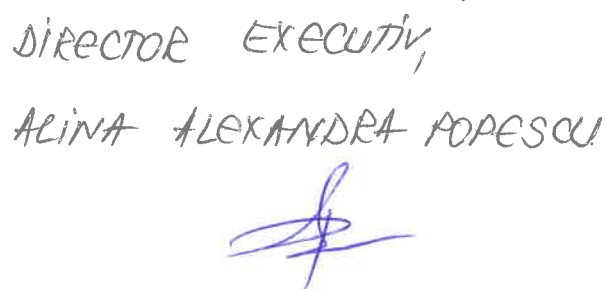 DIRECTOR EXECUTIV,
ALINA ALEXANDRA POPESCU